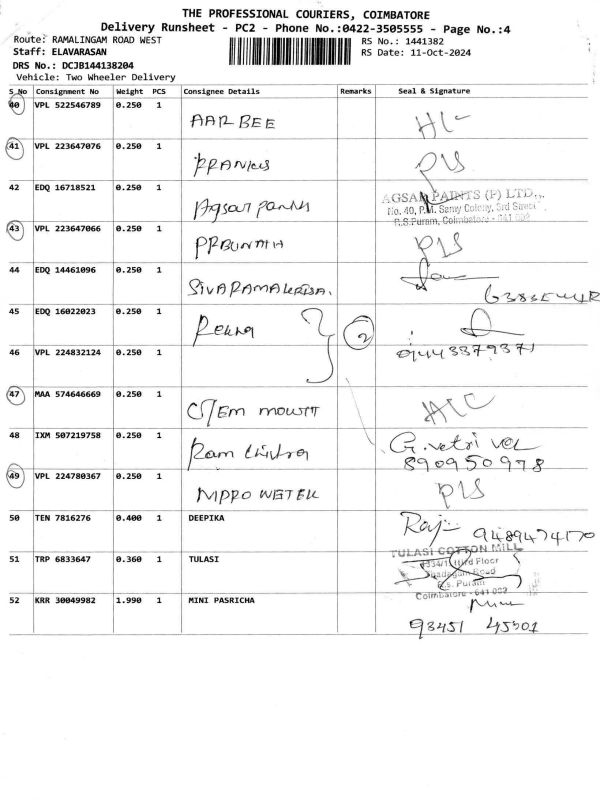 THE PROFESSIONAL COURIERS, COIMBATORE
Delivery Runsheet - PC2 - Phone No.:0422-3505555 - Page No.:4
Route: RAMALINGAM ROAD WEST
RS No.: 1441382
Staff: ELAVARASAN
RS Date: 11-Oct-2024
DRS No.: DCJB144138204
Vehicle: Two Wheeler Delivery
S No Consignment No Weight PCS Consignee Details Remarks Seal & Signature
40 VPL 522546789 0.250 1
AAR BEE
41 VPL 223647076 0.250 1
PLS
42 EDQ 16718521 0.250 1
AGSAR PAINTS (P) LTD.,
No. 40, P.M. Samy Colony, 3rd Street
R.S.Puram, Coimbatore - 641 002
43 VPL 223647066 0.250 1
PLS
44 EDQ 14461096 0.250 1
45 EDQ 16022023 0.250 1
2
46 VPL 224832124 0.250 1
9443379371
47 MAA 574646669 0.250 1
48 IXM 507219758 0.250 1
G. vetri vel
890950978
49 VPL 224780367 0.250 1
PLS
50 TEN 7816276 0.400 1 DEEPIKA
Raj 9489474170
51 TRP 6833647 0.360 1 TULASI
TULASI COTTON MILL
Floor
Road
R.S. Puram
Coimbatore - 641 002
52 KRR 30049982 1.990 1 MINI PASRICHA
93451 45301